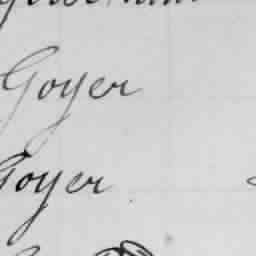 Goyer
Goyer